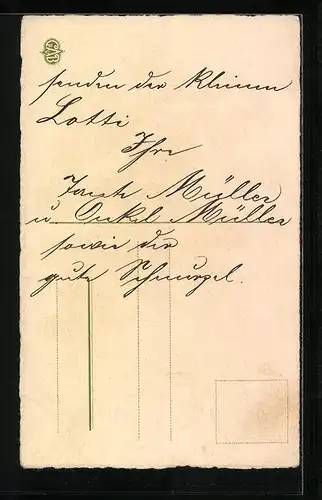 senden der kleinen
Lotti
Ihre
Tante Müller
u. Onkel Müller
sowie der
gute Schnurzel.